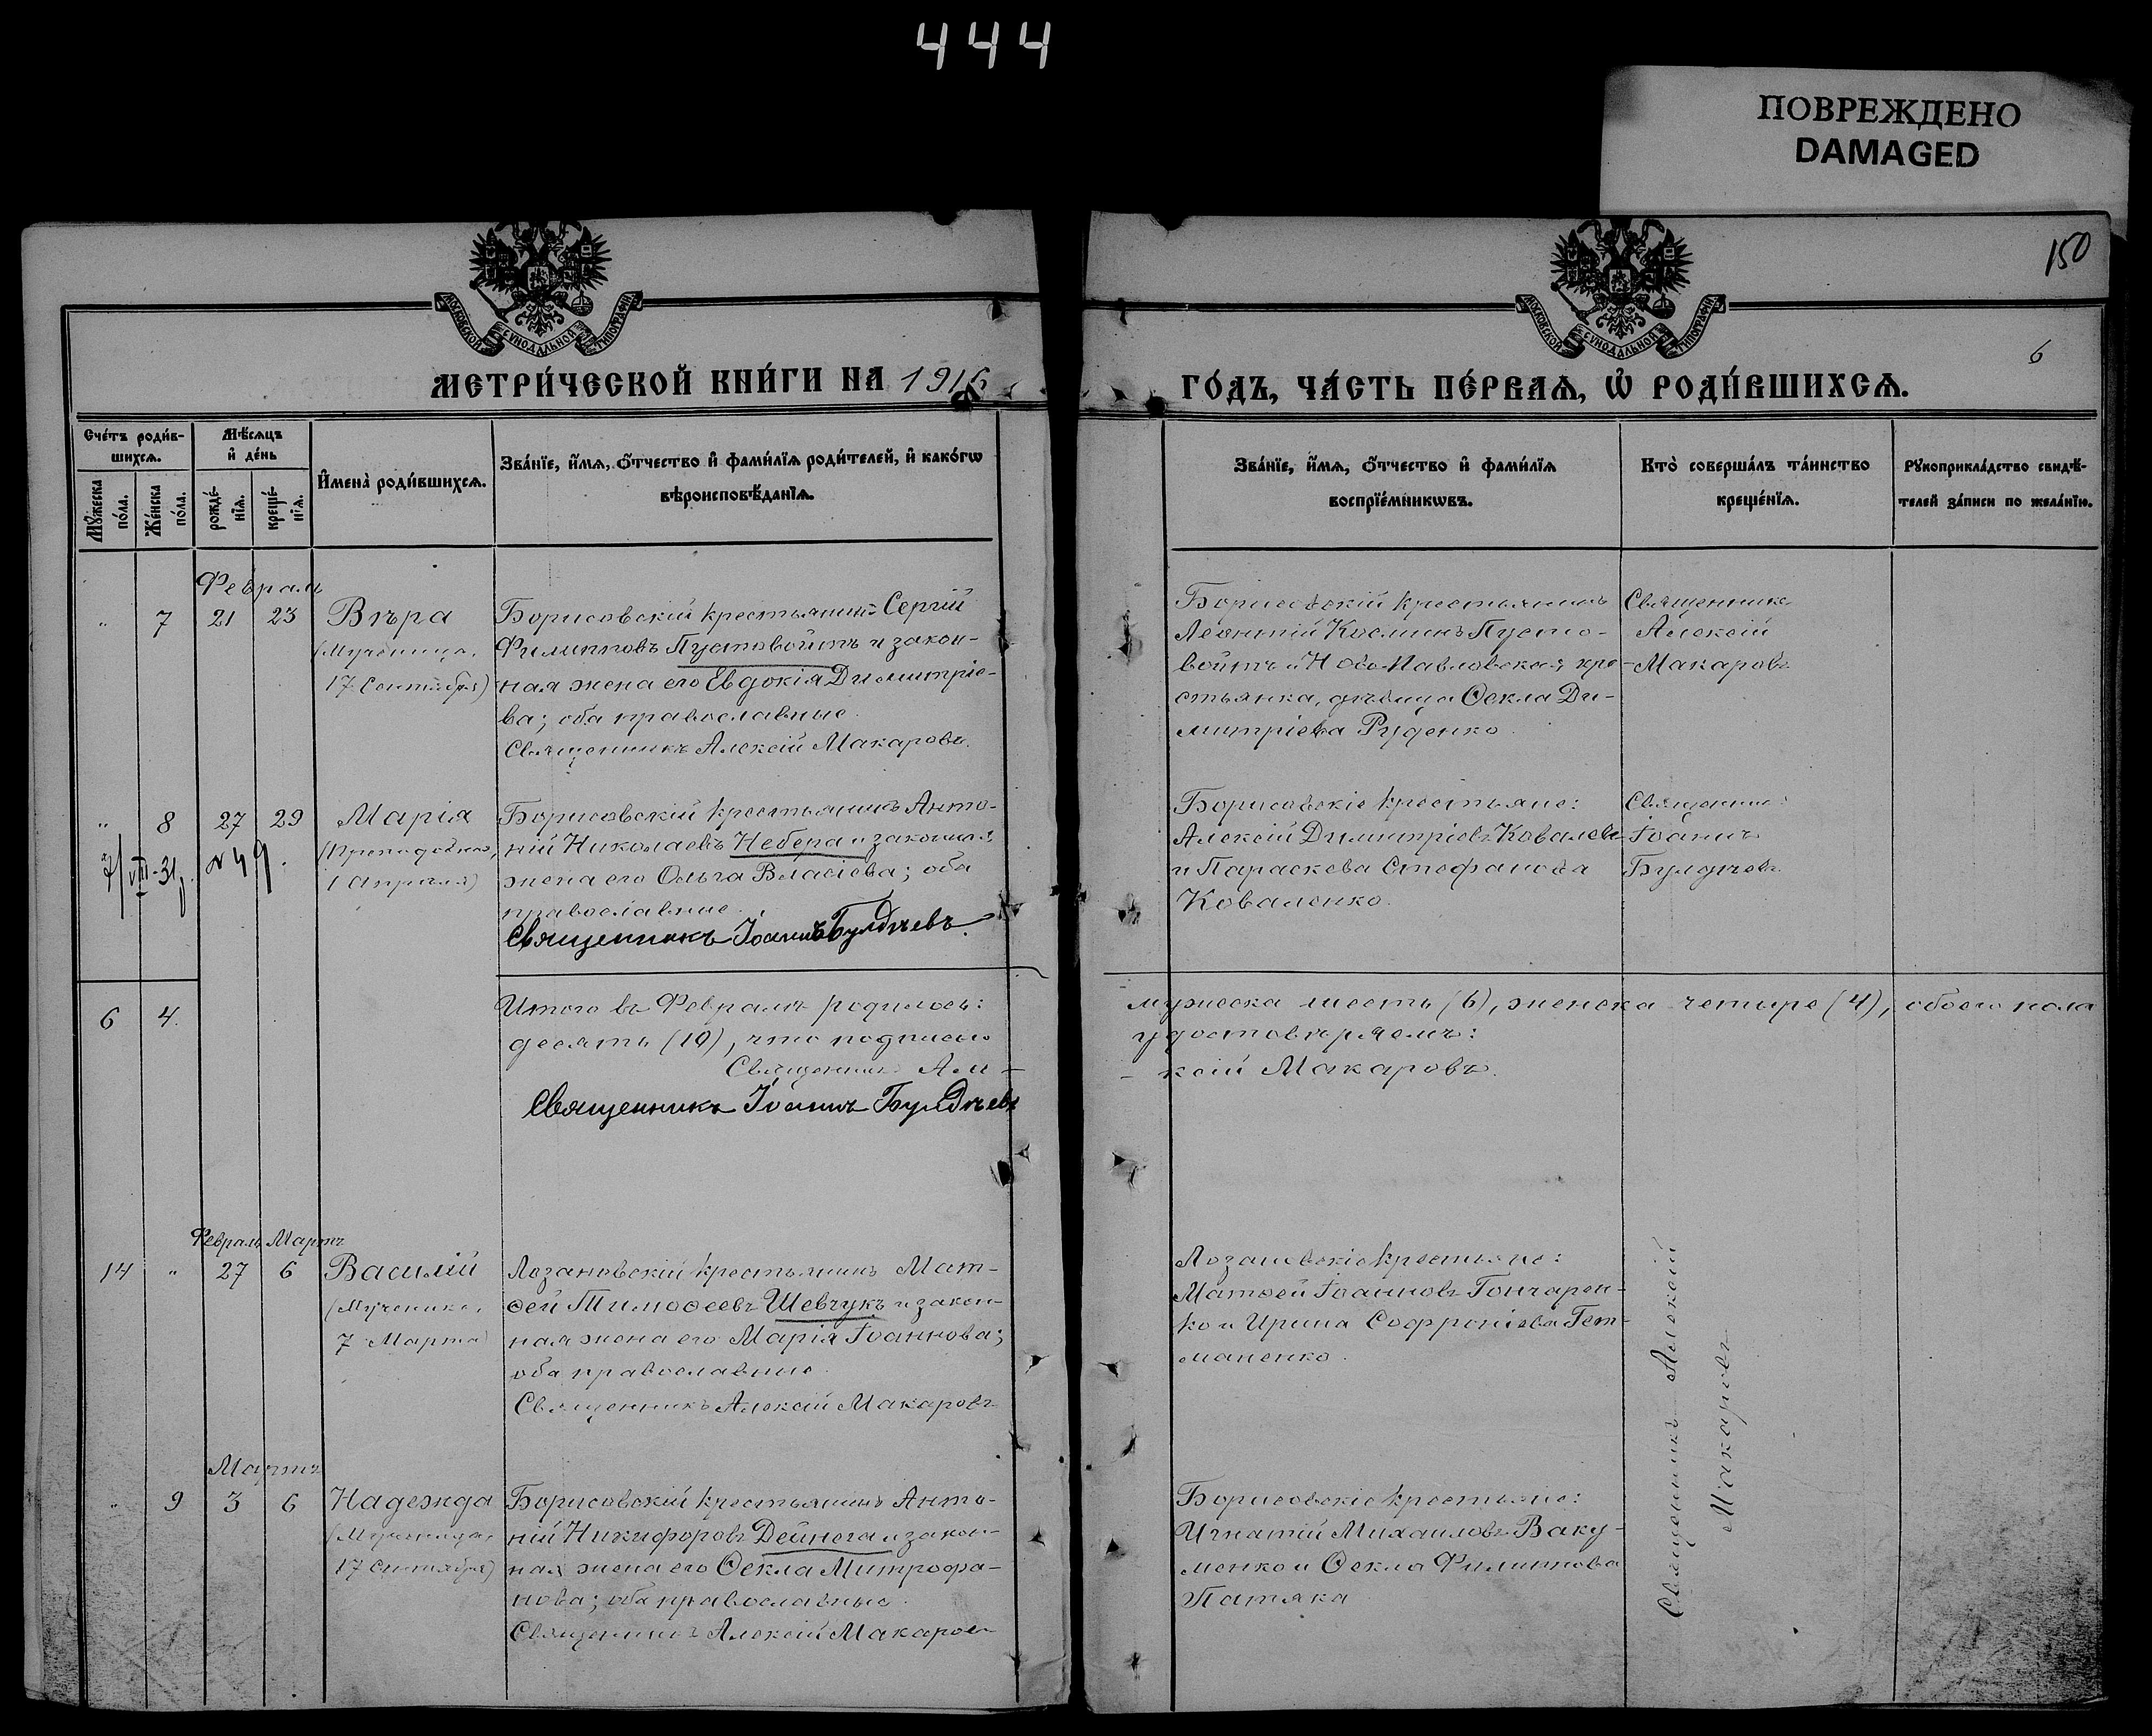 444
ПОВРЕЖДЕНО
DAMAGED
150
6
МОСКОВСКОЙ СѴНОДАЛЬНОЙ ТИПОГРАФІИ
МОСКОВСКОЙ СѴНОДАЛЬНОЙ ТИПОГРАФІИ
МЕТРИ́ЧЕСКОЙ КНИ́ГИ НА 1916
ГО́ДЪ, ЧА́СТЬ ПЕ́РВАѦ, Ѡ҆ РОДИ́ВШИХСѦ.
Сче́тъ роди́в-
шихсѧ.
Мꙋ́жеска по́ла.
Же́нска по́ла.
Мѣ́сѧцъ
и҆ де́нь
рожде́-
нїѧ.
креще́-
нїѧ.
И҆мена̀ роди́вшихсѧ.
Зва́нїе, и҆́мѧ, ѻ҆́тчество и҆ фами́лїѧ роди́телей, и҆ како́гѡ
вѣроисповѣ́данїѧ.
Зва́нїе, и҆́мѧ, ѻ҆́тчество и҆ фами́лїѧ
воспрїе́мникѡвъ.
Кто̀ соверша́лъ та́инство
креще́нїѧ.
Рꙋкоприкла́дство свидѣ́-
телей за́писи по жела́нїю.
Февраль
" 7 21 23 Вѣра
(Мученица,
17 Сентября)
Борисовскій крестьянинъ Сергій
Филипповъ Пустовойтъ и закон-
ная жена его Евдокія Димитріе-
ва; оба православные.
Священникъ Алексій Макаровъ.
Борисовскій крестьянинъ
Леонтій Косминъ Пусто-
войтъ и Ново-Павловская кре-
стьянка, дѣвица Ѳекла Ди-
митріева Руденко.
Священникъ
Алексій
Макаровъ
" 8 27 29 Марія
(Преподобная,
1 Апрѣля)
Борисовскій крестьянинъ Анто-
ній Николаевъ Небера и законная
жена его Ольга Власіева; оба
православные.
Священникъ Іоаннъ Булдчевъ.
Борисовскіе крестьяне:
Алексій Димитріевъ
и Параскева Стефанова
Коваленко.
Священникъ
Іоаннъ
6 4.
Итого въ Февралѣ родилось: мужеска шесть (6), женска четыре (4), обоего пола
десять (10), что подписью удостовѣряемъ:
Священникъ Але-
-ксій Макаровъ.
Священникъ Іоаннъ
Февраль Мартъ
14 " 27 6 Василій
(Мученикъ,
7 Марта)
Лозановскій крестьянинъ Мат-
ѳей Тимоѳеевъ Шевчукъ и закон-
ная жена его Марія Іоаннова;
оба православные.
Священникъ Алексій Макаровъ
Лозановскіе крестьяне:
Матѳей Іоанновъ Гончарен-
ко и Ирина Софроніева Гет-
маненко.
Священникъ Алексій
Макаровъ
Мартъ
" 9 3 6 Надежда
(Мученица,
17 Сентября)
Борисовскій крестьянинъ Анто-
ній Никифоровъ Дейнега и закон-
ная жена его Ѳекла Митрофа-
нова; оба православные.
Священникъ Алексій Макаровъ
Борисовскіе крестьяне:
Игнатій Михаиловъ Ваку-
ленко и Ѳекла Филиппова
Патяка